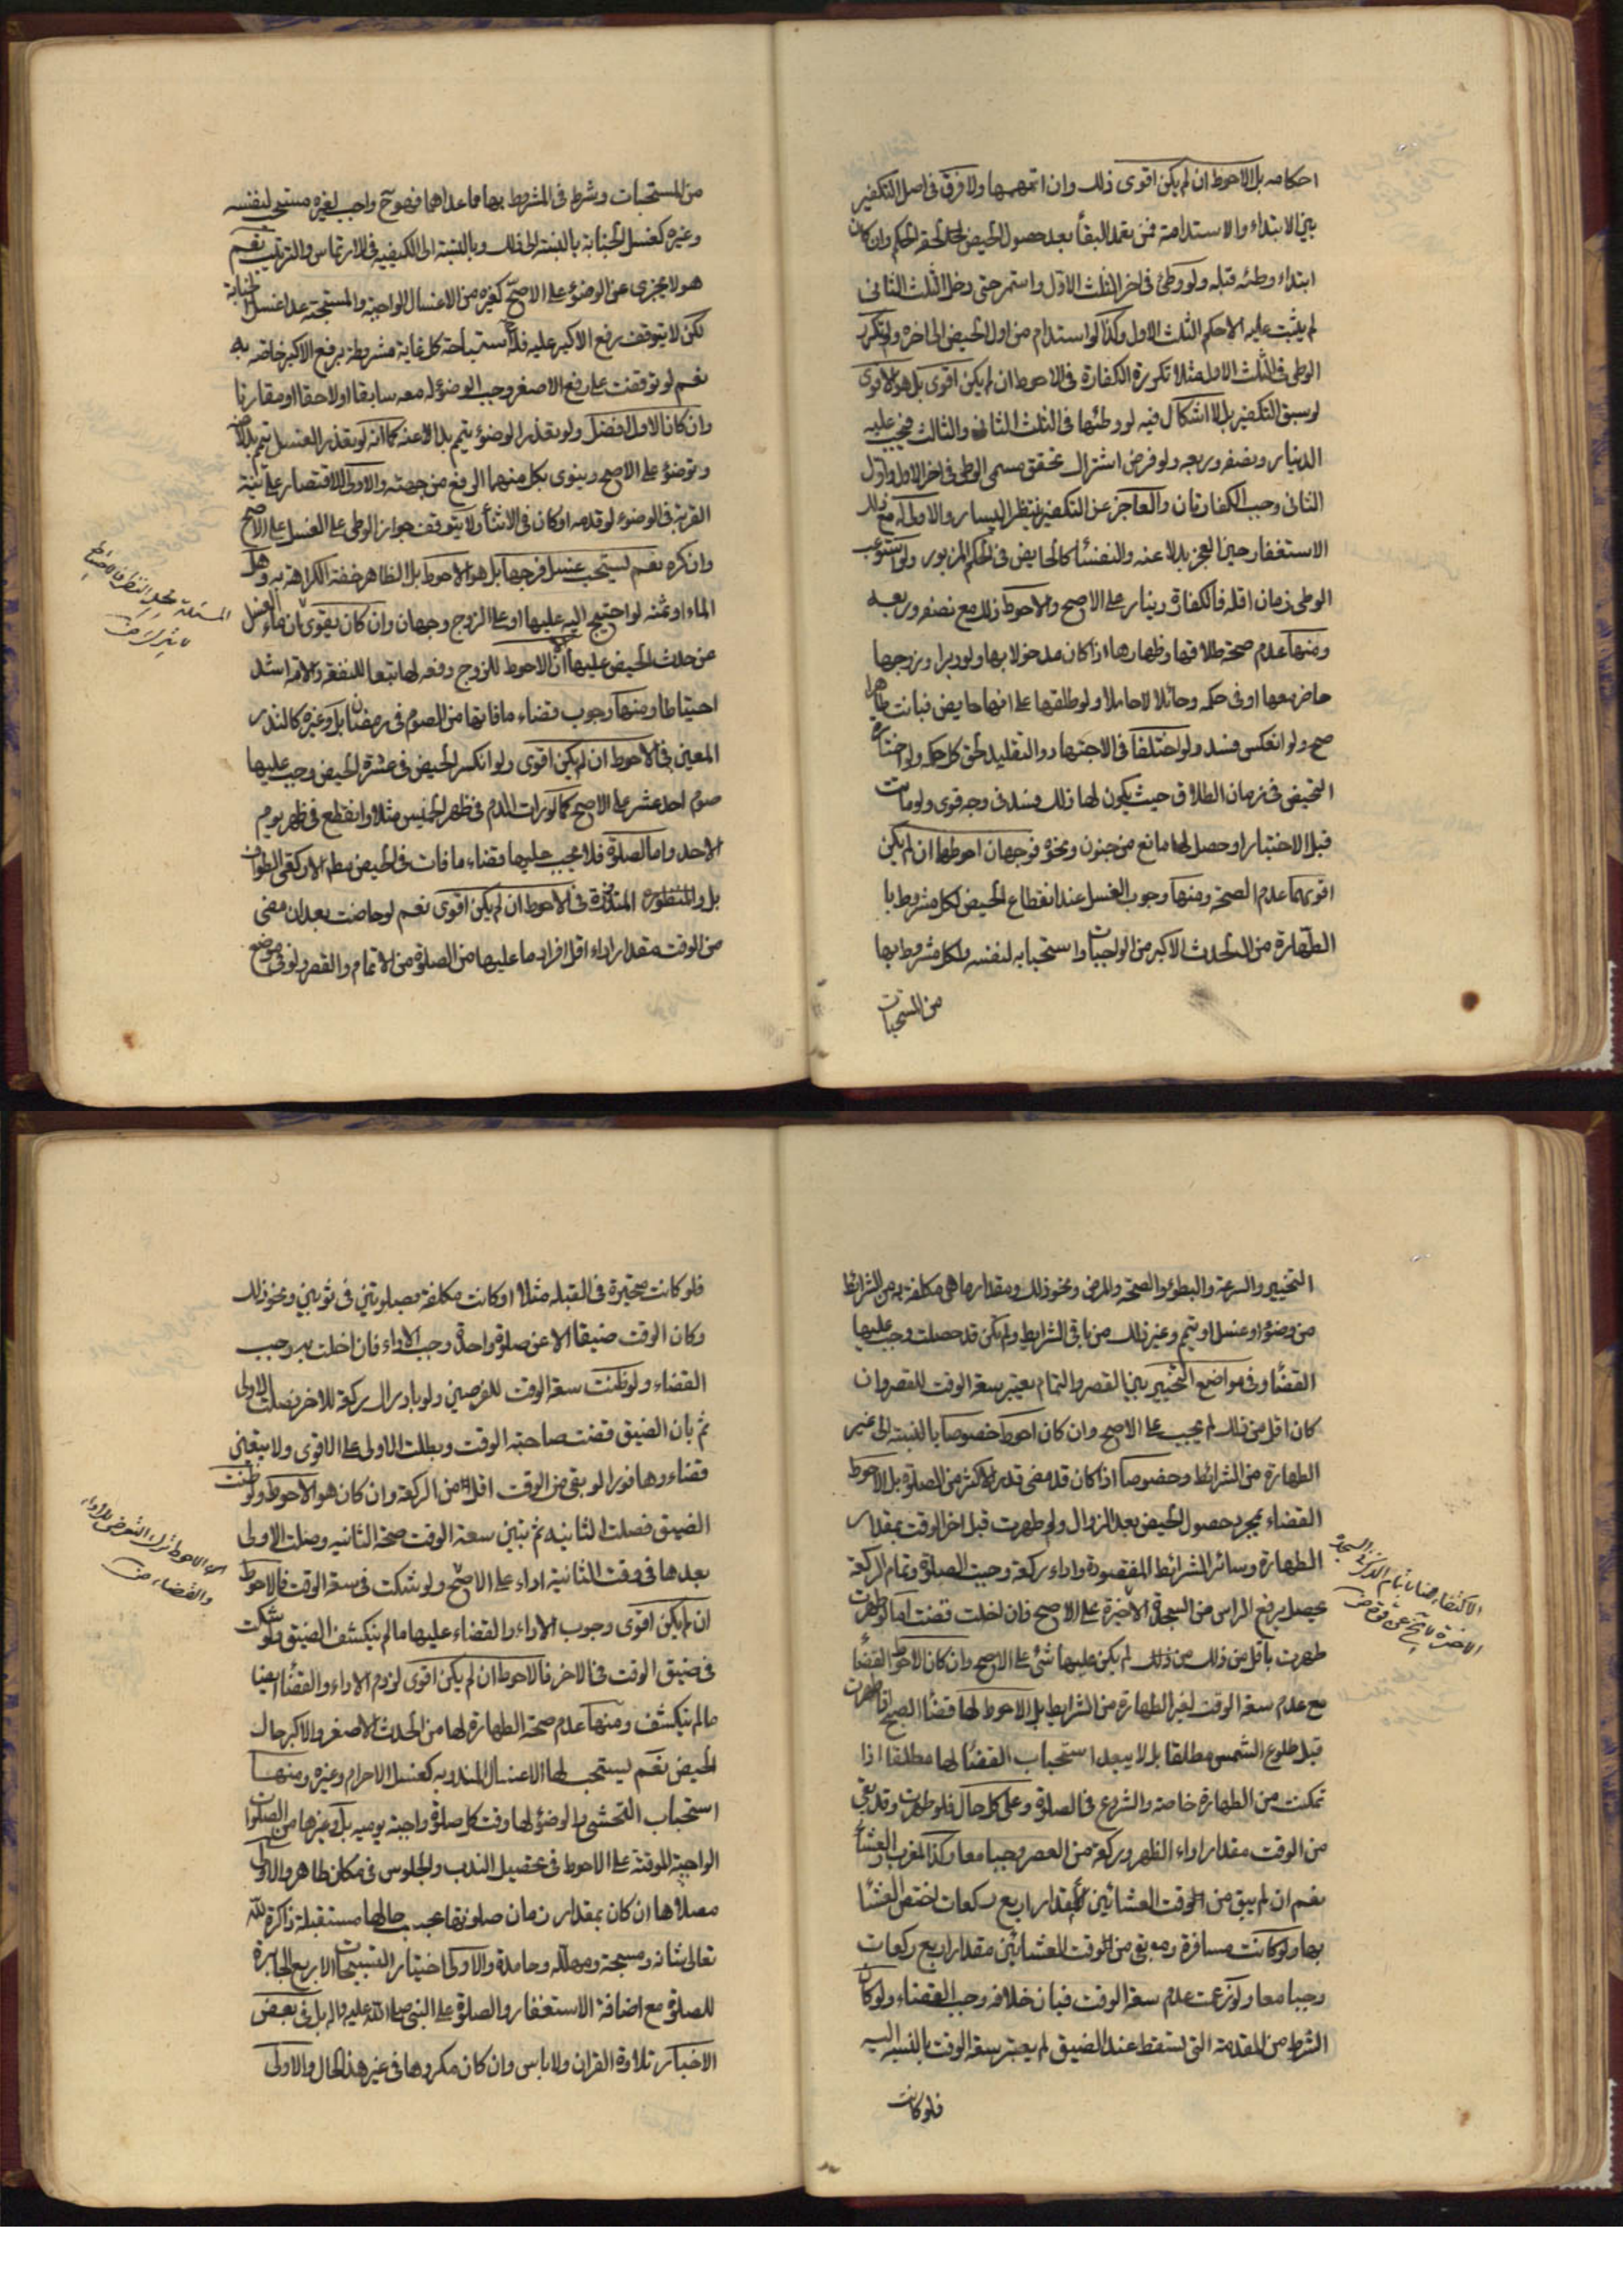 احكامه بل الاحوط ان لم يكن اقوى ذلك وان اتمهمها ولا فرق في اصل التكفير
بين الابتداء والاستدامة فمن تعمد البقاء بعد حصول الحيض لحقه الحكم وان كان
ابتداء وطئه قبله ولو وطئ في اخر الثلث الاول واستمر حتى دخل الثلث الثاني
لم يثبت عليه الا حكم الثلث الاول وكذا لو استدام من اول الحيض الى اخره ولو تكرر
الوطي في الثلث الاول مثلا تكررة الكفارة في الاحوط ان لم يكن اقوى بل هو الاقوى
لو سبق التكفير بل لا اشكال فيه لو وطئها في الثلث الثاني والثالث فيجب عليه
الدينار ونصفه وربعه ولو فرض اشتراك تحقق مسمى الوطي في اخر الاول واول
الثاني وجب الكفارتان والعاجز عن التكفير ينتظر اليسار والاولى له مع ذلك
الاستغفار حين العجز بدلا عنه والنفساء كالحايض في الحكم المزبور ولو استوعب
الوطي زمان اقله فالكفارة دينار على الاصح والاحوط ذلك مع نصفه وربعه
ومنها عدم صحة طلاقها وظهارها اذا كان مدخولا بها ولو دبرا وزوجها
حاضر معها او في حكمه وحائلا لا حاملا ولو طلقها على انها حايض فبانت طاهرا
صح ولو انعكس فسد ولو اختلفا في الاجتهاد والتقليد لحق كل حكمه ولو اختاره
التحيض في زمان الطلاق حيث يكون لها ذلك فسد في وجه قوى ولو ماتت
قبل الاختيار او حصل لها مانع من جنون ونحوه فوجهان احوطهما ان لم يكن
اقويهما عدم الصحة ومنها وجوب الغسل عند انقطاع الحيض لكل مشروط با
الطهارة من الحدث الاكبر من الواجبات واستحبابه لنفسه ولكل مشروط بها
من المستحبات
من المستحبات وشرط في المشروط بها مما عداهما فهو ح واجب لغيره مستحب لنفسه
وغيره كغسل الجنابة بالنسبة الى ذلك وبالنسبة الى الكيفية في الارتماس والترتيب نعم
هو لا يجزى عن الوضوء على الاصح كغيره من الاغسال الواجبة والمستحبة عدا غسل الجنابة
لكن لا يتوقف رفع الاكبر عليه فلها استباحة كل غاية مشروطة برفع الاكبر خاصة به
نعم لو توقفت على رفع الاصغر وجب الوضوء له معه سابقا او لاحقا او مقارنا
وان كان الاول افضل ولو تعذر الوضوء يتيم بدلا عنه كما انه لو تعذر الغسل يتم بدلا عنه
وتوضؤ على الاصح وينوى بكل منهما الرفع من جهته والاولى الاقتصار على نية
القربة في الوضوء لو قدمه او كان في الاثناء ولا يتوقف جواز الوطي على الغسل على الاصح
وان كره نعم يستحب غسل فرجها بل هو الاحوط بل الظاهر خفة الكراهة به وهل
الماء او ثمنه لو احتيج اليه عليها او على الزوج وجهان وان كان يقوى ان ماء الغسل
من حدث الحيض عليها الا ان الاحوط للزوج دفعه لها تبعا للنفقة والامة اشد
احتياطا ومنها وجوب قضاء ما فاتها من الصوم في رمضان بل وغيره كالنذر
المعين في الاحوط ان لم يكن اقوى ولو انكسر الحيض في عشرة الحيض وجب عليها
صوم احد عشر على الاصح كما لو رات الدم في ظهر الخميس مثلا وانقطع في ظهر يوم
الاحد واما الصلوة فلا يجب عليها قضاء ما فات في الحيض منها الا ركعتي الطواف
بل والمنظورة المتنذرة في الاحوط ان لم يكن اقوى نعم لو حاضت بعد ان مضى
من الوقت مقدار اداء اقل افراد ما عليها من الصلوة من الاتمام والقصر ولو في موضع
المسئلة محل النظر فالاحتياط
لا يترك
التخيير والسرعة والبطؤ والصحة والمرض ونحو ذلك ومقدار ما هي مكلفة به من الشرائط
من وضوء او غسل او تيم وغير ذلك من باقي الشرايط ولم يكن قد حصلت وجب عليها
القضاء وفي مواضع التخيير بين القصر والتمام يعتبر سعة الوقت للقصر وان
كان اقل من ذلك لم يجب على الاصح وان كان احوط خصوصا بالنسبة الى غير
الطهارة من الشرائط وخصوصا اذا كان قد مضى قدر الاكثر من الصلوة بل الاحوط
القضاء بمجرد حصول الحيض بعد الزوال ولو طهرت قبل اخر الوقت بمقدار
الطهارة وسائر الشرائط المفقودة واداء ركعة وجبت الصلوة وتمام الركعة
يحصل برفع الراس من السجدة الاخيرة على الاصح فان اخلت قضت اما لو طهرت
طهرت باقل من ذلك من ذلك لم يكن عليها شئ على الاصح وان كان الاحوط القضاء
مع عدم سعة الوقت لغير الطهارة من الشرايط بل الاحوط لها قضاء الصبح لو طهرت
قبل طلوع الشمس مطلقا بل لا يبعد استحباب القضاء لها مطلقا اذا
تمكنت من الطهارة خاصة والشروع في الصلوة وعلى كل حال فلو طهرت وقد بقى
من الوقت مقدار اداء الظهر وركعة من العصر وجبا معا وكذا المغرب والعشاء
نعم ان لم يبق من الوقت العشائين الا مقدار اربع ركعات اختص العشاء
بها ولو كانت مسافرة وبقى من الوقت العشائين مقدار اربع ركعات
وجبا معا ولو زعمت عدم سعة الوقت فبان خلافه وجب القضاء ولو كان
الشرط من المقدمة التي تسقط عند الضيق لم يعتبر سعة الوقت بالنسبة اليه
فلو كانت
فلو كانت متحيرة في القبلة مثلا او كانت مكلفة بصلوتين في ثوبين ونحو ذلك
وكان الوقت ضيقا الا عن صلوة واحدة وجب الاداء فان اخلت به وجب
القضاء ولو ظنت سعة الوقت للفرضين ولو بادراك ركعة للاخر فصلت الاولى
ثم بان الضيق قضت صاحبة الوقت وبطلت الاولى على الاقوى ولا يتعين
قضاءها فورا لو بقى من الوقت اقل من الركعة وان كان هو الاحوط ولو ظنت
الضيق فصلت الثانية ثم تبين سعة الوقت صحة الثانية وصلت الاولى
بعدها في وقت الثانية اداء على الاصح ولو شكت في سعة الوقت فالاحوط
ان لم يكن اقوى وجوب الاداء والقضاء عليها ما لم ينكشف الضيق ولو شكت
في ضيق الوقت في الاخر فالاحوط ان لم يكن اقوى لزوم الاداء والقضاء ايضا
ما لم ينكشف ومنها عدم صحة الطهارة لها من الحدث الاصغر والاكبر حال
الحيض نعم يستحب لها الاغسال المندوبة كغسل الاحرام وغيره ومنها
استحباب التحشي والوضوء لها وقت كل صلوة واجبة يومية بل وغيرها من الصلوات
الواجبة الموقتة على الاحوط في تحصيل الندب والجلوس في مكان طاهر والاولى
مصلاها ان كان بمقدار زمان صلوتها بحسب حالها مستقبلة ذاكرة لله
تعالى شانه ومسبحة ومهللة وحامدة والاولى اختيار التسبيحات الاربع الجابرة
للصلوة مع اضافة الاستغفار والصلوة على النبي صلى الله عليه واله بل في بعض
الاخبار تلاوة القران ولا باس وان كان مكروها في غير هذا الحال والاولى
الاحوط ترك التعرض للاداء
والقضاء